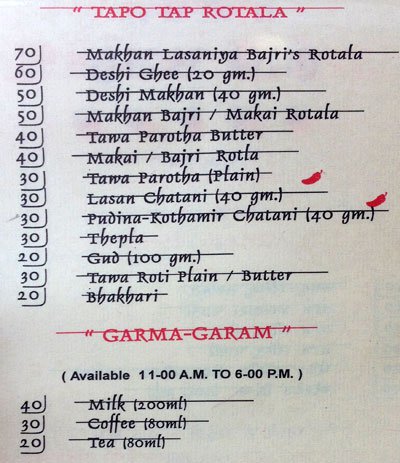 " TAPO TAP ROTALA "
70 Makhan Lasaniya Bajri's Rotala
60 Deshi Ghee (20 gm.)
50 Deshi Makhan (40 gm.)
50 Makhan Bajri / Makai Rotala
40 Tawa Parotha Butter
40 Makai / Bajri Rotla
30 Tawa Parotha (Plain)
30 Lasan Chatani (40 gm.)
30 Pudina-Kothamir Chatani (40 gm.)
30 Thepla
20 Gud (100 gm.)
30 Tawa Roti Plain / Butter
20 Bhakhari
" GARMA-GARAM "
( Available 11-00 A.M. TO 6-00 P.M. )
40 Milk (200ml)
30 Coffee (80ml)
20 Tea (80ml)